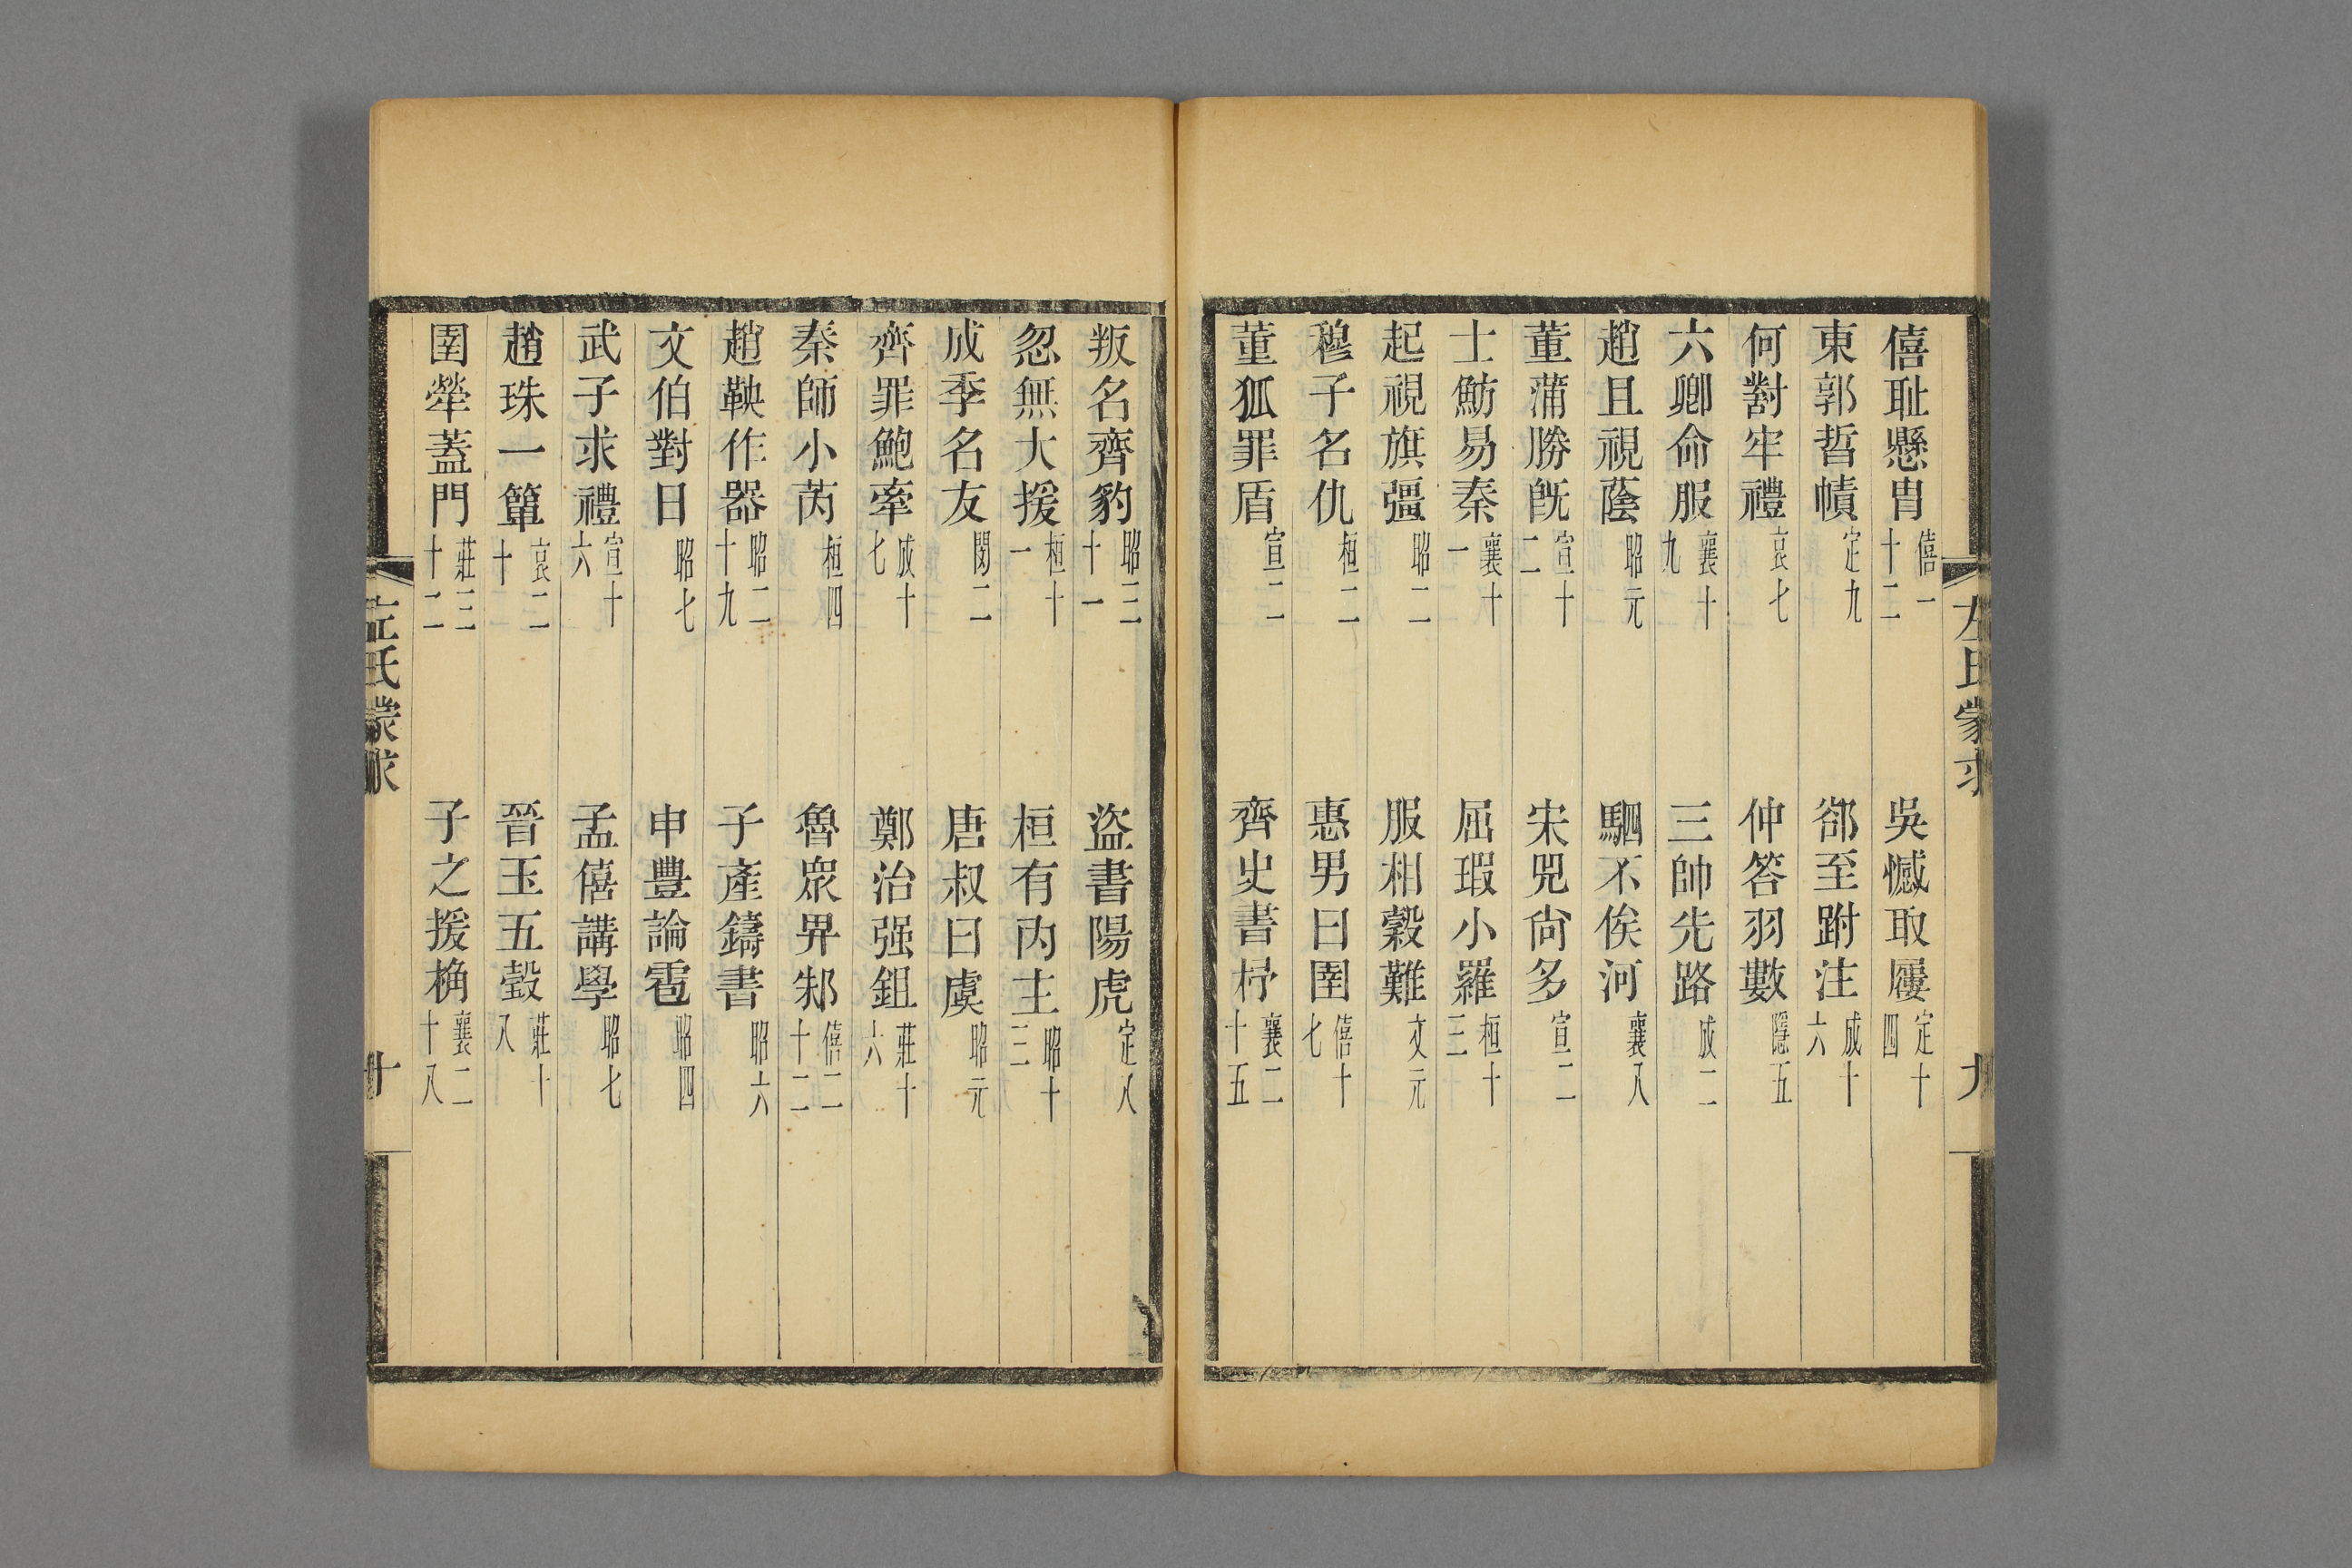 僖耻懸胄僖一十二　吳憾取屨定十四
東郭晳幘定九　郤至跗注成十六
何對牢禮哀七　仲答羽數隱五
六卿命服襄十九　三帥先路成二
趙且視蔭昭元　駟不俟河襄八
董蒲勝旣宣十二　宋兕尙多宣二
士魴易秦襄十一　屈瑕小羅桓十三
起視旗彊昭二　服相穀難文元
穆子名仇桓二　惠男曰圉僖十七
董狐罪盾宣二　齊史書杼襄二十五
左氏蒙求　九
叛名齊豹昭三十一　盜書陽虎定八
忽無大援桓十一　桓有內主昭十三
成季名友閔二　唐叔曰虞昭元
齊罪鮑牽成十七　鄭治强鉏莊十六
秦師小芮桓四　魯眾畀邾僖二十二
趙鞅作器昭二十九　子產鑄書昭六
文伯對日昭七　申豐論雹昭四
武子求禮宣十六　孟僖講學昭七
趙珠一簞哀二十　晉玉五瑴莊十八
圉犖蓋門莊三十二　子之援桷襄二十八
左氏蒙求　十